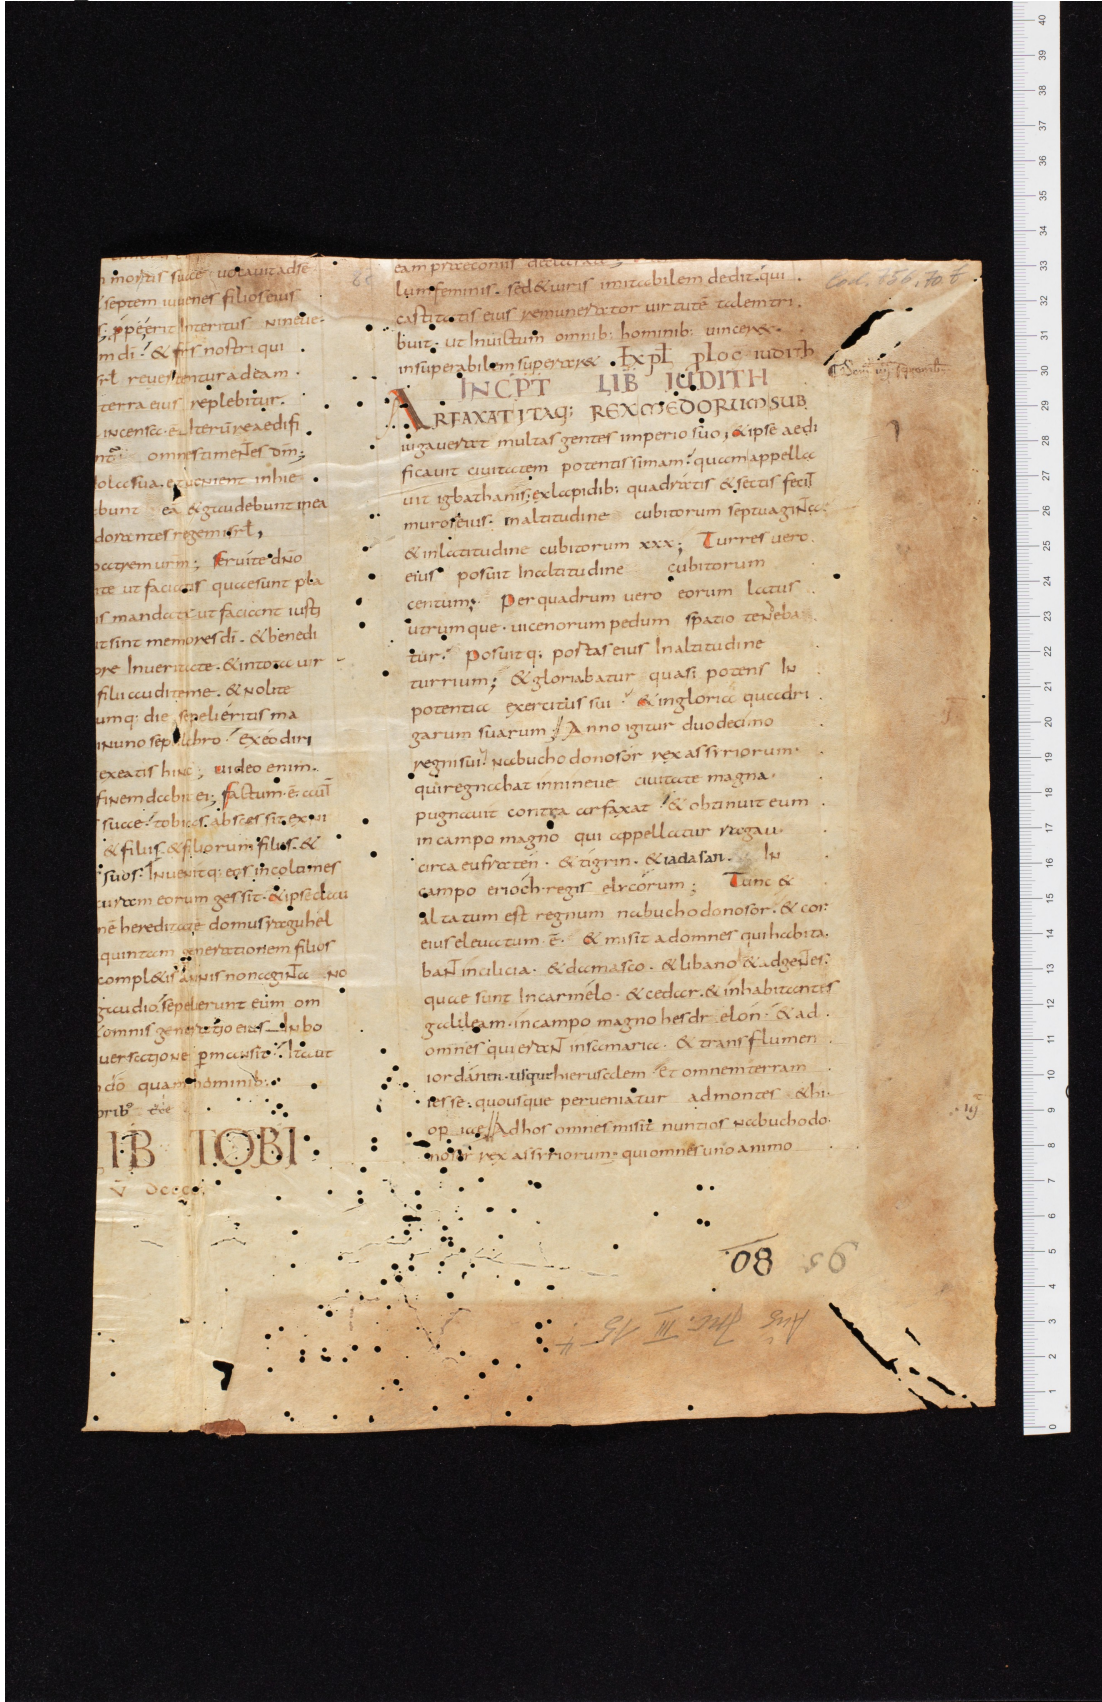 mortis suae uocauit ad se
septem iuuenes filios eius
ꝓpe erit Interitus nineue
m dī & frs nostri qui
reuertentur ad eam
terra eius replebitur.
incensa ē Iterū reaedifi
omnes timentes dm;
dola sua. et uenient in hie
bunt ea & gaudebunt in ea
dorantes regem isrl,
patrem urm; seruite dño
te ut faciatis quae sunt pla
is mandate ut faciant iusti
ut sint memores dī. & benedi
ore In ueritate. & in tota uir
filii audite me. & Nolite
umq: die sepelieritis ma
iN uno sepulchro Ex eo diri
exeatis hinc; uideo enim.
finem dabit ei; factum. ē. aut
suae tobias abscessit ex ni
& filiis. & filiorum filiis. &
suos. INuenitq: eos incolumes
curam eorum gessit. & ipse clau
nē hereditatē domus raguhel
quintam generationem filios
compl&is annis nonagiNta No
gaudio sepelierunt eum om
omnis generatio eius IN bo
uersatione ꝑmansit Ita ut
dō quam hominib:
LIB TOBI
eam praeconiis declarate
lum feminis. sed & uiris imitabilem dedit. qui
castitatis eius remunerator uirtutē talem tri
buit. ut Inuictum omnib: hominib: uincer&.
insuperabilem superar& Expł ploc iudith
INCPT LIB IUDITH
ARFAXAT ITAQ; REX MEDORUM SUB
iugauerat multas gentes imperio suo; & ipse aedi
ficauit ciuitatem potentissimam. quam appella
uit igbathanis; ex lapidib: quadratis & sectis fecit
muros eius. in altitudine cubitorum septuagiNta
& in latitudine cubitorum xxx; Turres uero.
eius posuit In altitudine cubitorum
centum; Per quadrum uero eorum latus
utrumque. uicenorum pedum spatio teNeba
tur. Posuitq: postas eius In altitudine
turrium; & gloriabatur quasi potens IN
potentia exercitus sui & in gloria quadri
garum suarum; Anno igitur duodecimo
regni sui Nabuchodonosor rex assyriorum.
qui regnabat in nineue ciuitate magna.
pugnauit contra arfaxat & obtinuit eum
in campo magno qui appellatur ragau.
circa eufraten. & tigrin. & iadasan. IN
campo erioch. regis elicorum; Tunc &
altatum est regnum nabuchodonosor. & cor
eius eleuatum. ē. & misit ad omnes qui habita.
baNt in cilicia. & damasco. & libano & ad geNtes.
quae sunt In carmelo. & cedar. & inhabitantes
galileam. in campo magno hesdrelon. & ad.
omnes qui eraNt in samaria. & trans flumen
iordanen. usque hierusalem et omnem terram
iesse. quousque perueniatur ad montes &hi.
opiae; Ad hos omnes misit nuntios Nabuchodo.
nosor rex assyriorum. qui omnes uno animo
Cod. 756, 70 b
08 56
Aug Inc. III 15 4